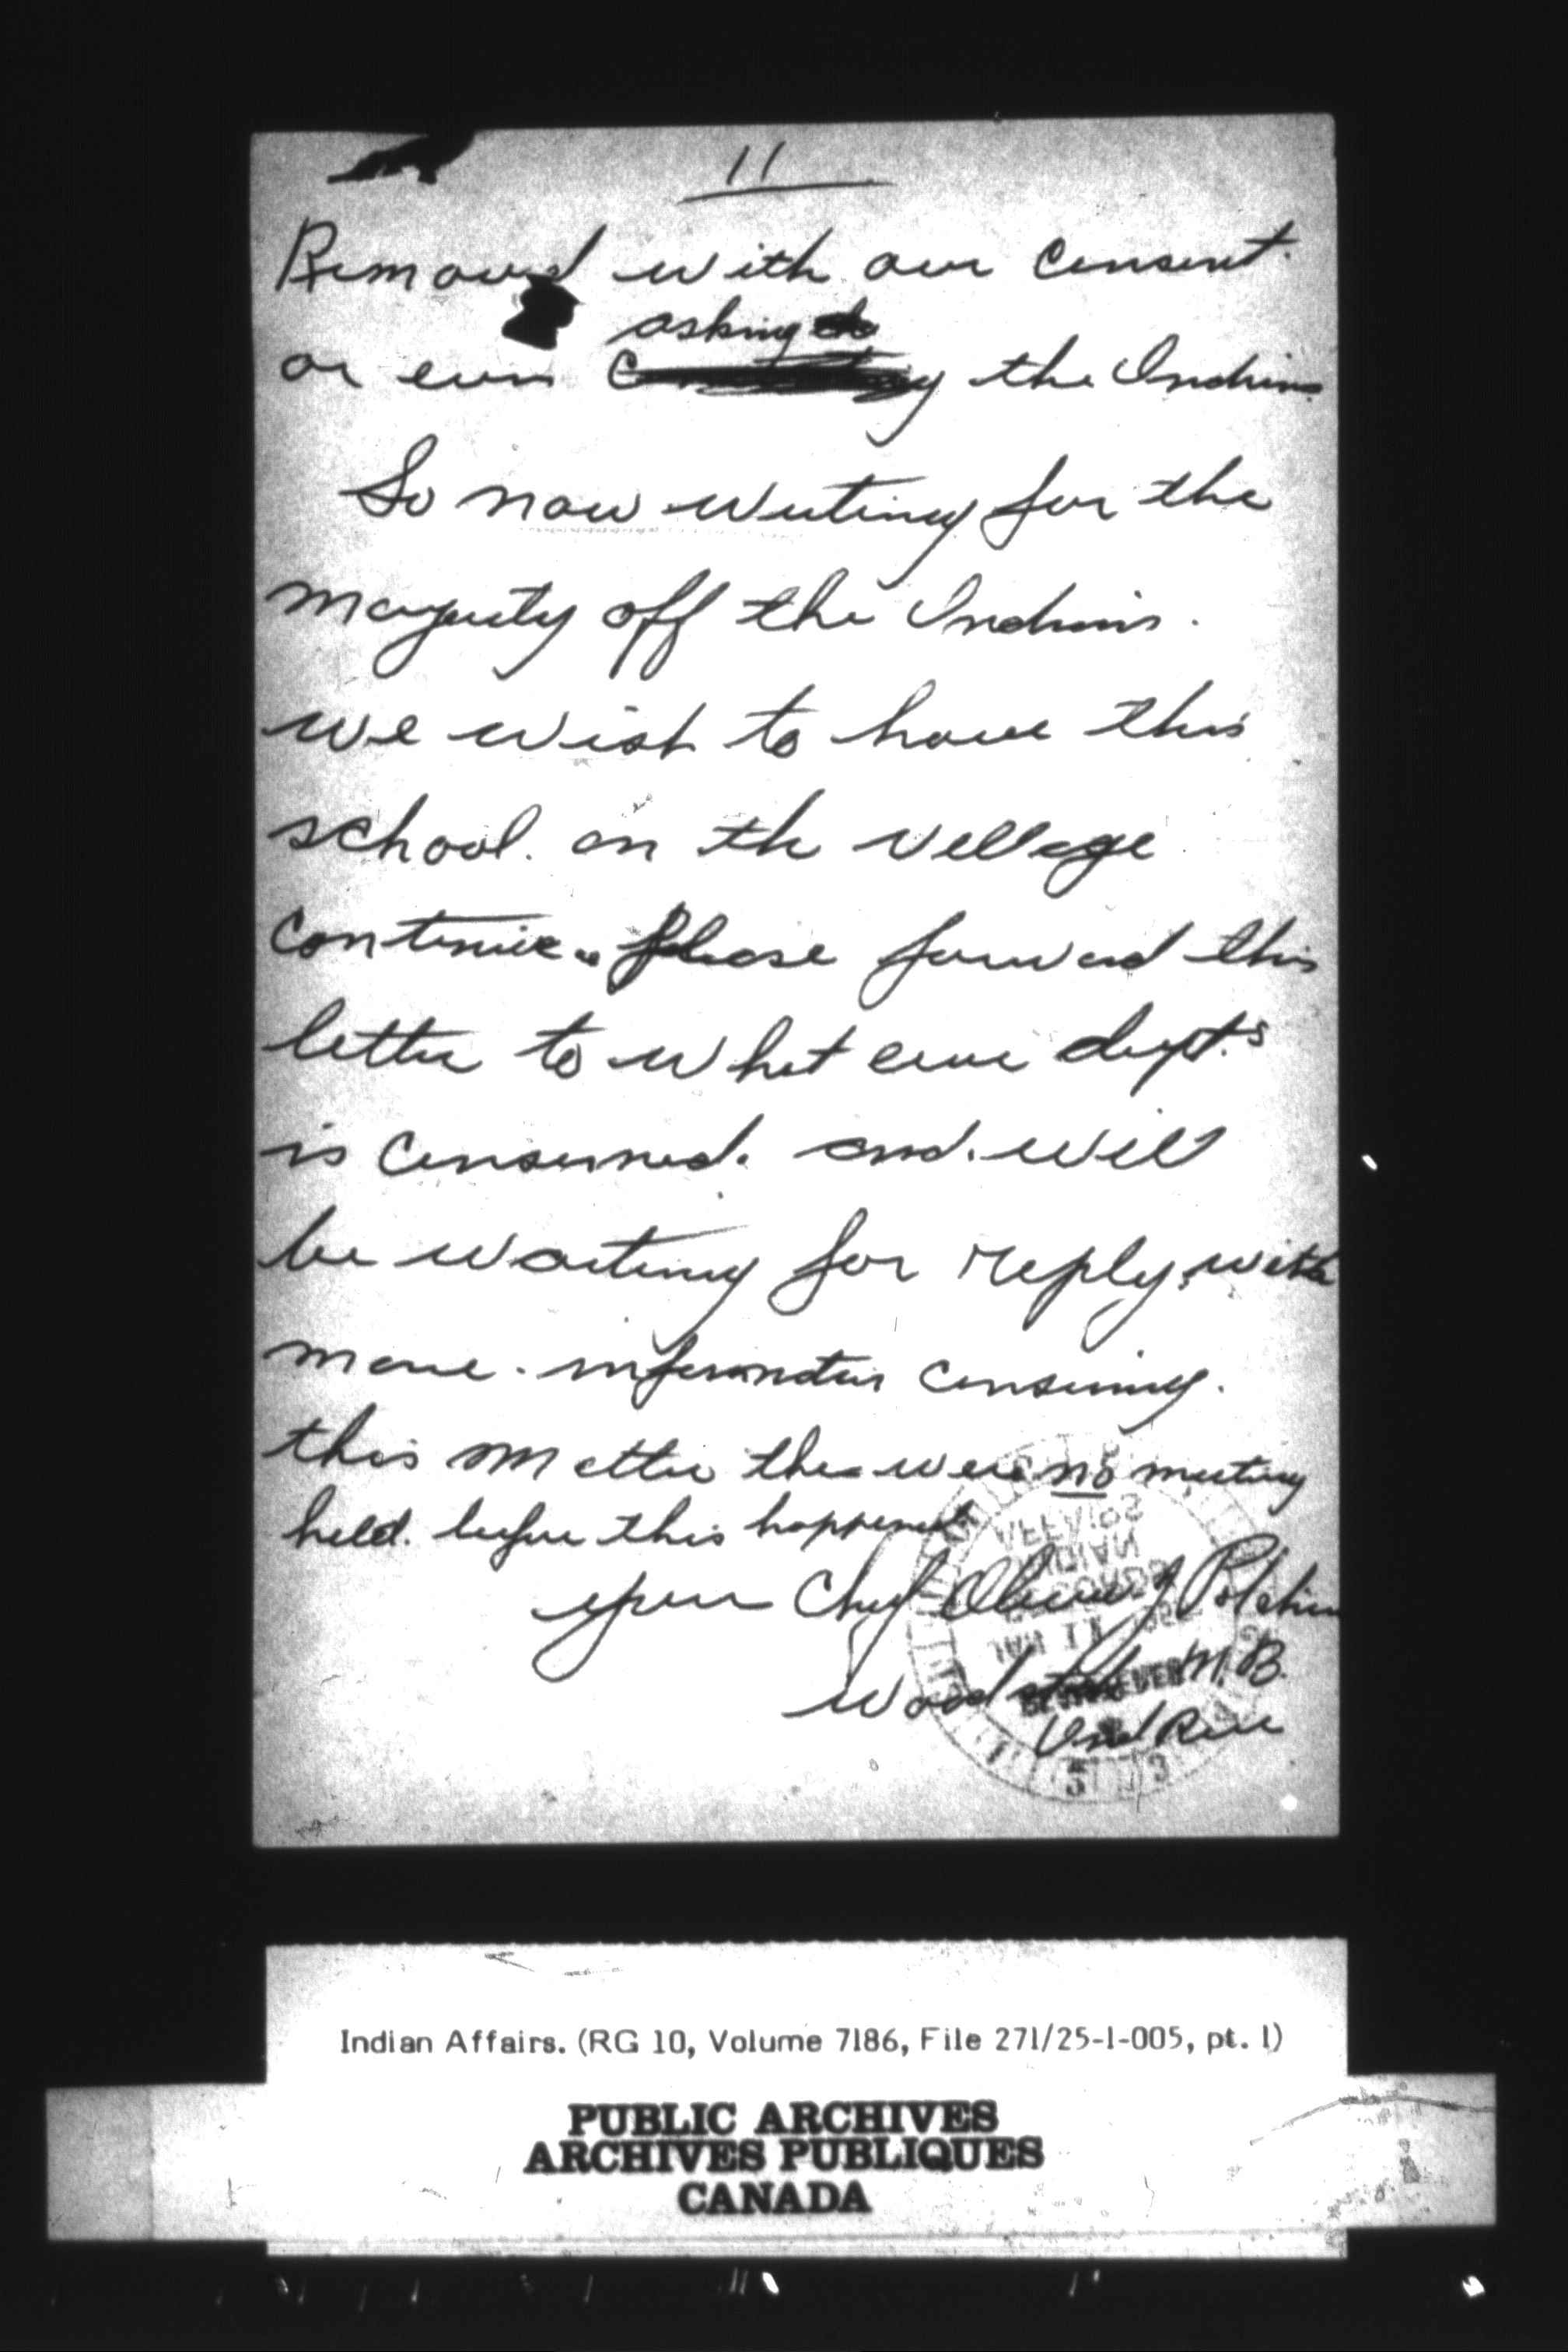 11
Removed with our consent.
asking
or even the Indians
So now writing for the
majority off the Indians.
we wish to have this
school. on the vellage
continue. Please forward this
letter to what ever dept.s
is conserned. and. will
be waiting for reply, with
more. information conserning.
this matter the were no meeting
held. before this happened
your Chief Oliver J Polchies
Woodstock N.B.
Ind Res
INDIAN AFFAIRS
Indian Affairs. (RG 10, Volume 7186, File 271/25-1-005, pt. 1)
PUBLIC ARCHIVES
ARCHIVES PUBLIQUES
CANADA